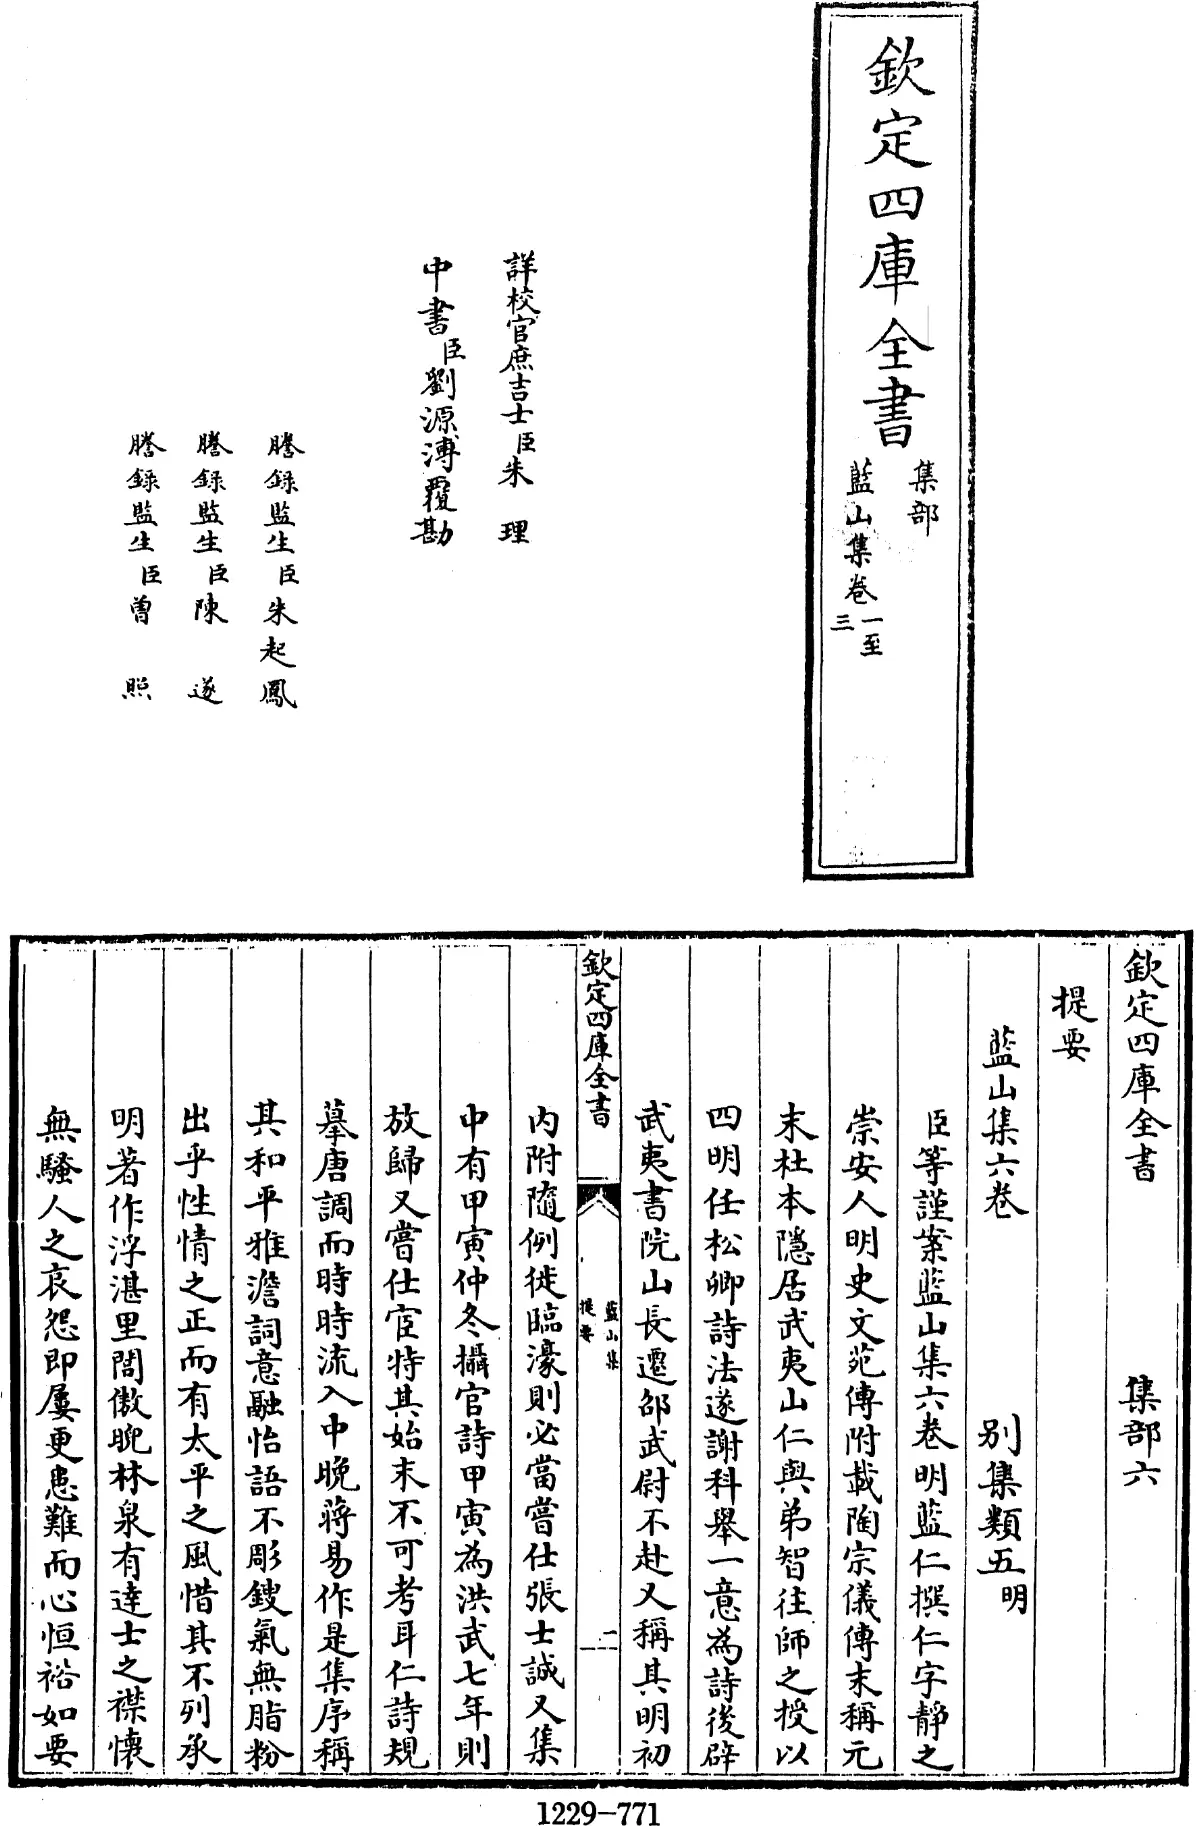 欽定四庫全書
集部
藍山集卷一至三
詳校官庶吉士臣朱理
中書臣劉源溥覆勘
謄錄監生臣朱起鳳
謄錄監生臣陳遂
謄錄監生臣曾照
欽定四庫全書 集部六
提要
藍山集六卷 別集類五明
臣等謹案藍山集六卷明藍仁撰仁字靜之
崇安人明史文苑傳附載陶宗儀傳末稱元
末杜本隱居武夷山仁與弟智往師之授以
四明任松卿詩法遂謝科舉一意為詩後辟
武夷書院山長遷邵武尉不赴又稱其明初
欽定四庫全書
藍山集
提要
二
內附隨例徙臨濠則必當嘗仕張士誠又集
中有甲寅仲冬攝官詩甲寅為洪武七年則
放歸又嘗仕宦特其始末不可考耳仁詩規
摹唐調而時時流入中晚蔣易作是集序稱
其和平雅澹詞意融怡語不彫鎪氣無脂粉
出乎性情之正而有太平之風惜其不列承
明著作浮湛里閭傲睨林泉有達士之襟懷
無騷人之哀怨即屢更患難而心恒裕如要
1229-771